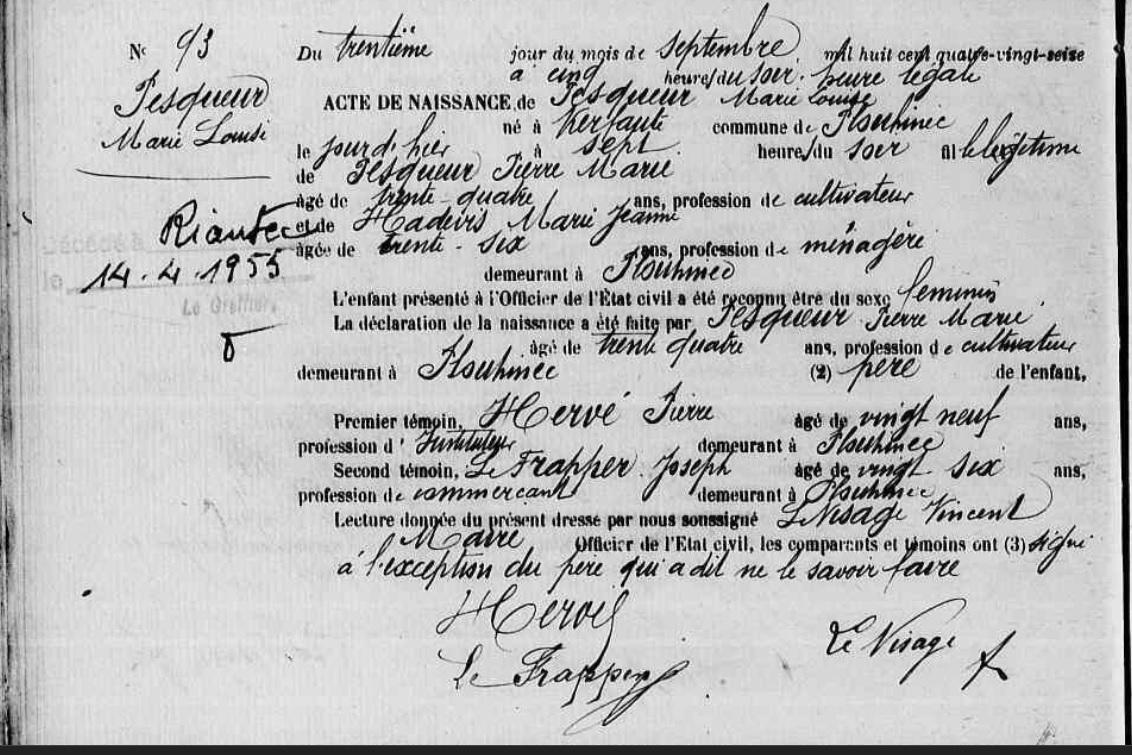 N° 93
Pesqueur
Marie Louise
Du trentième jour du mois de septembre mil huit cent quatre-vingt-seize
à cinq heures du soir. heure légale
ACTE DE NAISSANCE de Pesqueur Marie Louise
né à commune de Plouhinec
le jour d'hier à sept heures du soir fille légitime
de Pesqueur Pierre Marie
âgé de trente-quatre ans, profession de cultivateur
et de Marie Jeanne
âgée de trente-six ans, profession de ménagère
demeurant à Plouhinec
Décédé à Riantec
le 14.4.1955
Le Greffier,
L'enfant présenté à l'Officier de l'État civil a été reconnu être du sexe féminin
La déclaration de la naissance a été faite par Pesqueur Pierre Marie
âgé de trente quatre ans, profession de cultivateur
demeurant à Plouhinec (2) père de l'enfant,
Premier témoin, Hervé Pierre âgé de vingt neuf ans,
profession d'Instituteur demeurant à Plouhinec
Second témoin, Le Frapper Joseph âgé de vingt six ans,
profession de commerçant demeurant à Plouhinec
Lecture donnée du présent dressé par nous soussigné Le Visage Vincent
Maire Officier de l'État civil, les comparants et témoins ont (3) signé
à l'exception du père qui a dit ne le savoir faire
Hervé
Le Frapper
Le Visage